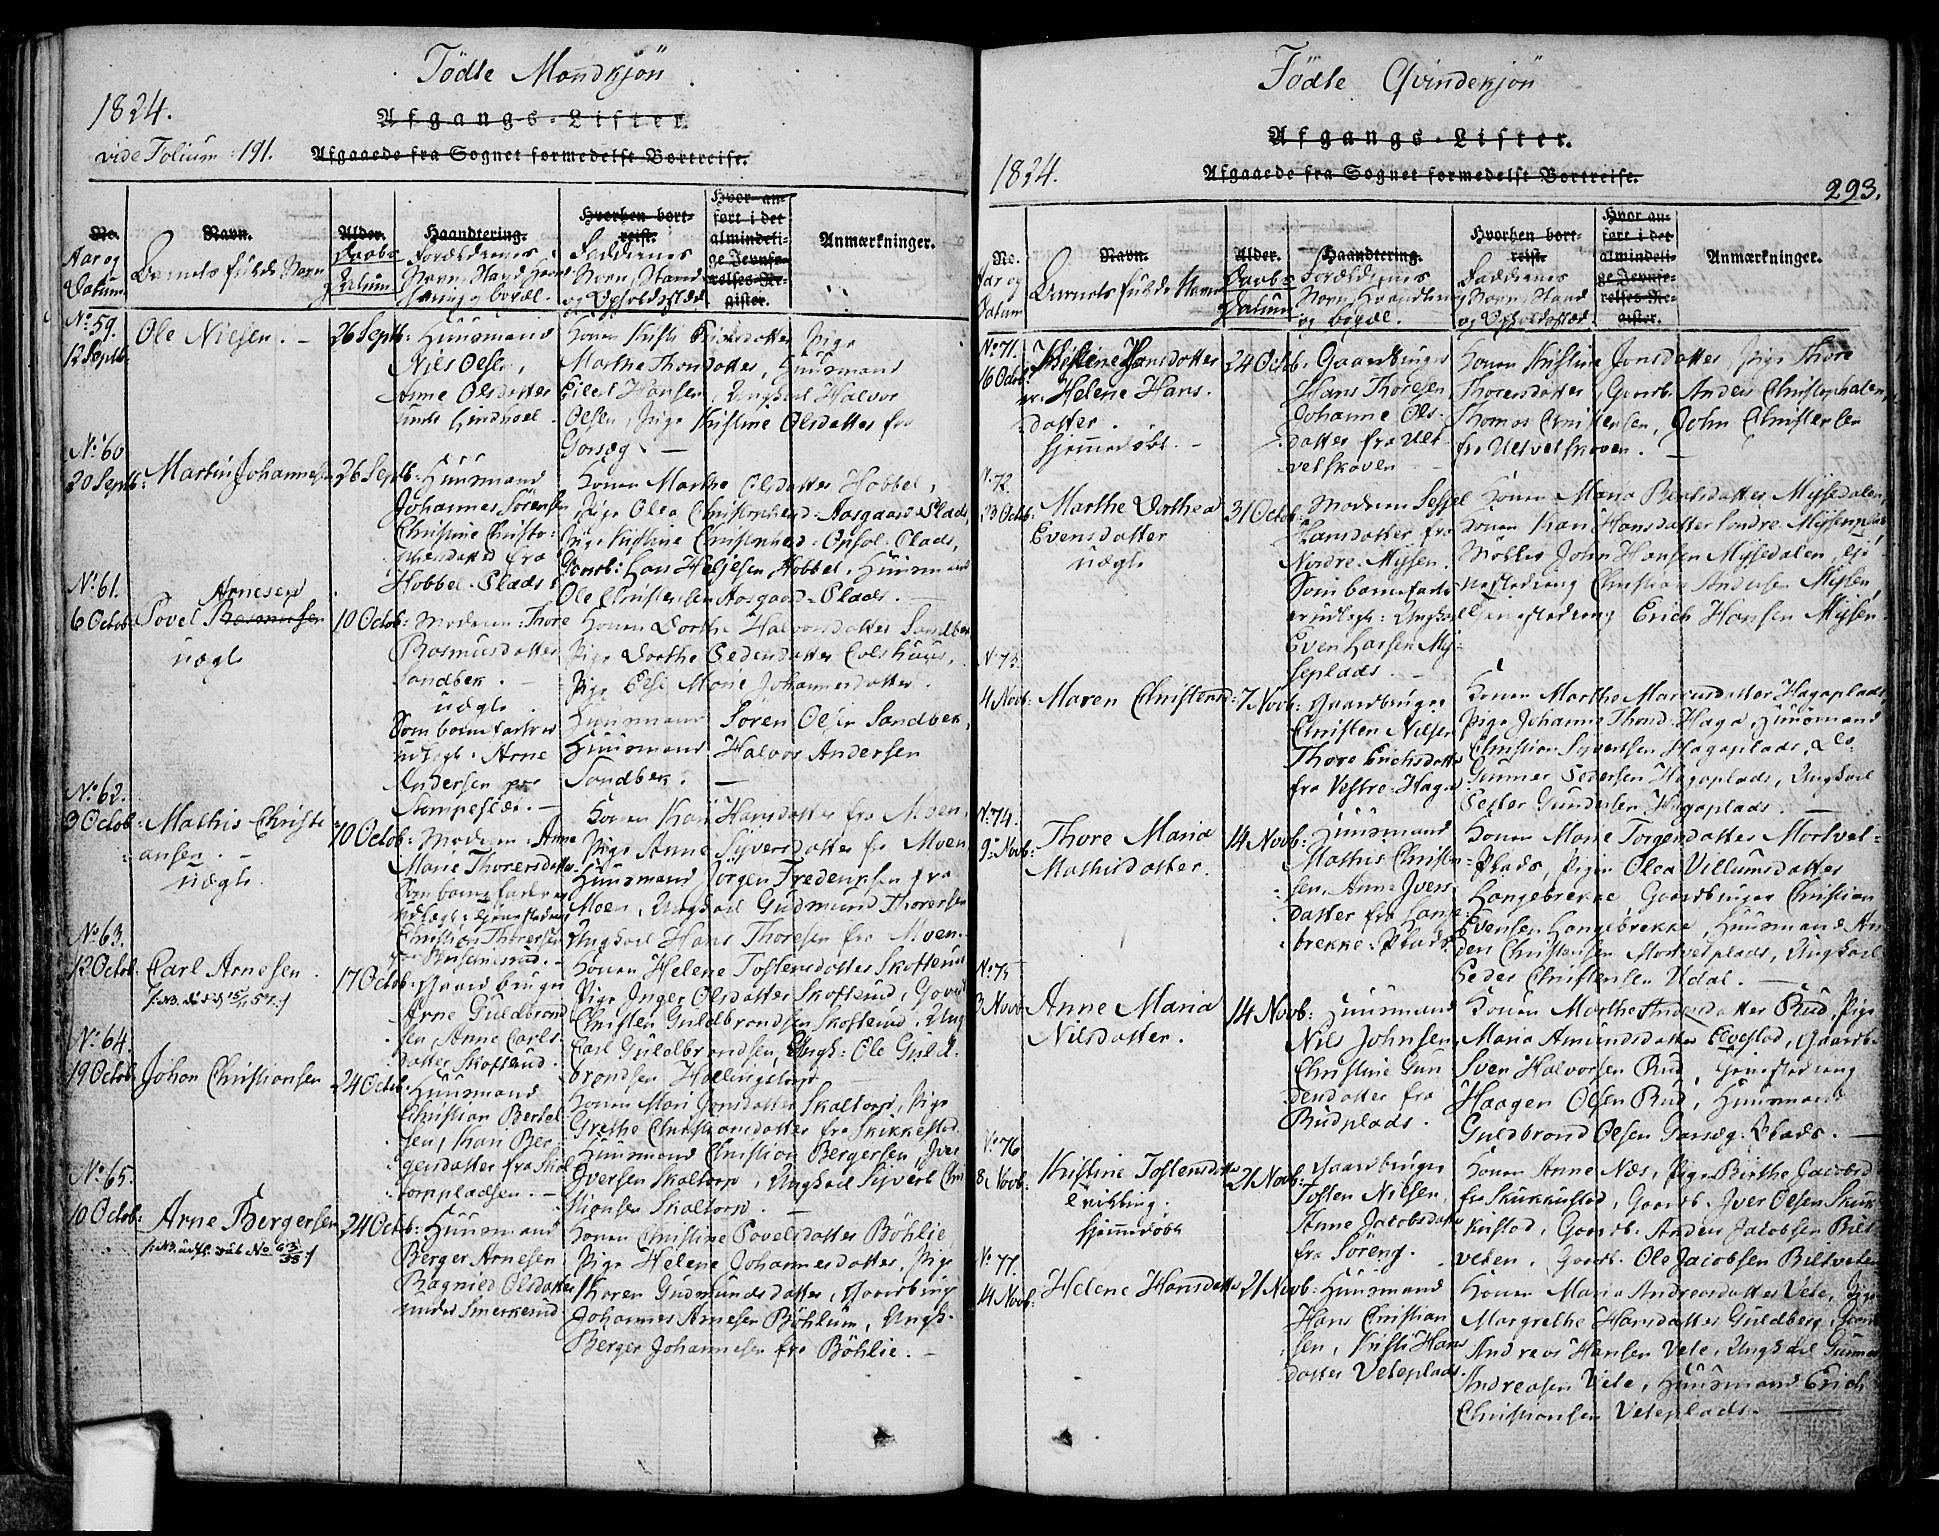 Födte Mandkjön
1824.
Afgangs-Lister.
vide Folium 191.
Afgaaede fra Sognet formedelst Bortreise.
No. Navn. Alder. Haandtering. Hvorhen bortreist. Hvor anført i det almindelige Jevnførelses-Register. Anmærkninger.
Aar og Datum
Barnets fulde Navn
Daabs Datum
Forældrenes Navn, Stand
og boepæl.
Faddernes Navn, Stand
og Opholdssted
No. 59.
12 Septb.
Ole Nielsen.
26 Septb:
Huusmand
Nils Olsen,
Anne Olsdatter
Marthe Thorsdatter, Huusmand
Eilert Hansen, Ungkarl Halvor
Olsen, Pige Kristine Olsdatter fra
No. 60
20 Septb:
Martin Johannesen
26 Septb:
Huusmand
Johannes Sörensen
Christine Christo-
phersdatter fra
Hobbel-Plads
Konen Marthe Olsdatter Hobbel,
Pige Olea Christophersd: Aasgaard-Plads,
Pige Kristine Christophersd: Opsal-Plads,
Gaardb: Lars Helgesen Hobbel, Huusmand
Ole Christensen Aasgaard-Plads.
No. 61.
6 Octob:
Arnesen
Povel Rasmussen
uægte
10 Octob:
Moderen: Thore
Rasmusdatter
Sandbek.
uægte
Som barnefader er
udlagt: Arne
Andersen
Konen Dorthe Halvorsdatter Sandbek
Pige Dorthe Pedersdatter
Pige Else Marie Johannesdatter.
Huusmand Sören Olsen Sandbek,
Huusmand Halvor Andersen
Sandbek.
No. 62.
3 Octob:
Mathis Christi-
ansen.
uægte.
10 Octob:
Moderen: Anne
Marie Thorersdatter
Som barnefader er
udlagt:
Christian Thorersen
Konen Kari Hansdatter fra Moen,
Pige Anne Syversdatter fra Moen,
Huusmand Jörgen Fredrichsen fra
Moen, Ungkarl Gudmund Thorersen
Ungkarl Hans Thoresen fra Moen.
No. 63.
12 Octob:
Carl Arnesen
17 Octob:
Gaardbruger
Arne Guldbrand-
sen, Anne Carls-
datter Skofterud.
Konen Helene Tostensdatter Skofterud
Pige Inger Olsdatter Skofterud, Gaardb
Christen Guldbrandsen Skofterud, Ung
Carl Guldbrandsen, Ungk: Ole Guld-
brandsen
No. 64.
19 Octob:
Johan Christiansen
24 Octob:
Huusmand
Christian Bertel-
sen, Kari Ber-
gersdatter fra Skal-
torppladsen.
Konen Mari Jonsdatter Skaltorp, Pige
Grethe Christiansdatter fra Skikkestad
Huusmand Christian Bergersen, Iver
Iversen Skaltorp, Ungkarl Syvert Chri-
stiansen Skaltorp.
No. 65.
10 Octob:
Arne Bergersen
24 Octb:
Huusmand
Berger Arnesen
Ragnild Olsdatter
under Smerkerud
Konen Christine Povelsdatter Böhlie,
Pige Helene Johannesdatter, Pige
Karen Gudmundsdatter, Gaardbrug
Johannes Arnesen Böhlum, Ungk.
Berger Johannesen fra Böhlie.
Födte Qvindekjön
Afgangs-Lister.
1824.
Afgaaede fra Sognet formedelst Bortreise.
293.
No. Navn. Alder. Haandtering. Hvorhen bortreist. Hvor anført i det almindelige Jevnførelses-Register. Anmærkninger.
Aar og Datum
Barnets fulde Navn
Daabs Datum
Forældrenes
Navn, Haandtering
og boepæl.
Faddernes
Navn, Stand
og Opholdssted.
No. 71.
16 Octob:
Kristine Hansdatter
er: Helene Hans-
datter.
hjemmedöbt.
24 Octb.
Gaardbruger
Hans Thoresen
Johanne Ols-
datter fra Ult-
vetskoven
Konen Kristine Jonsdatter, Pige Thore
Thorersdatter, Gaardb. Anders Christophersen,
Thomas Christensen, John Christensen
fra Ultvetskoven.
No. 72.
23 Octob:
Marthe Dorthea
Evensdatter
uægte
31 Octob:
Moderen Sessel
Hansdatter fra
Nordre-Mysen.
Som barnefader
er udlagt: Ungkarl
Even Larsen My-
seplads.
Konen Maria Berntsdatter Mysedalen,
Konen Kari Hansdatter Söndre Mysenplads
Möller John Hansen Mysedalen, Tje-
nestedreng Christian Andersen Mysen,
Tjenestedreng Erich Hansen Mysen.
No. 73.
4 Novb:
Maren Christensd:
7 Novb:
Gaardbruger
Christen Nilsen
Thore Erichsdatter
fra Vestre-Haga
Konen Marthe Mariusdatter Hagaplads,
Pige Johanne Thorsd: Haga, Huusmand
Christian Syvertsen Hagaplads, Do
Gunner Pedersen Hagaplads, Ungkarl
Peder Gundersen Hagaplads.
No. 74.
9 Novb:
Thore Maria
Mathisdatter.
14 Novb:
Huusmand
Mathis Christen-
sen, Anne Ivers-
datter fra Lange-
brekke-Plads
Konen Marie Torgersdatter Mortvet-
Plads, Pigen Olea Villumsdatter
Langebrekke, Gaardbruger Christian
Evensen Langebrekke, Huusmand An-
ders Christensen Mortvetplads, Ungkarl
Peder Christensen Udal.
No. 75
3 Novb
Anne Maria
Nilsdatter.
14 Novb:
Huusmand
Nils Johnsen,
Christine Gun-
dersdatter fra
Rudplads.
Konen Marthe Andersdatter Rud, Pige
Maria Amundsdatter Elvestad, Gaardb.
Sven Halvorsen Rud, Tjenestedreng
Haagen Olsen Rud, Huusmand
Guldbrand Olsen Garseg-Plads.
No. 76
8 Novb:
Kristine Tostensdatter
tvilling
hjemmedöbt
21 Novb:
Gaardbruger
Tosten Nilsen,
Anne Jacobsdatter
fra Söreng.
Konen Anne Næs, Pige Birthe Jacobsd
fra Skukkustad, Gaardb. Iver Olsen Skuk-
kustad, Gaardb. Anders Jacobsen Bilt-
veten, Gaardb. Ole Jacobsen Biltveten
No. 77.
14 Novb:
Helene Hansdatter
21 Novb:
Huusmand
Hans Christian-
sen, Kristi Hans-
datter Veteplads.
Konen Maria Andreasdatter Vete, Pige
Margrethe Hansdatter Guldberg, Gaard
Andreas Hansen Vete, Ungkarl Gunner
Andreasen Vete, Huusmand Erich
Christiansen Veteplads.